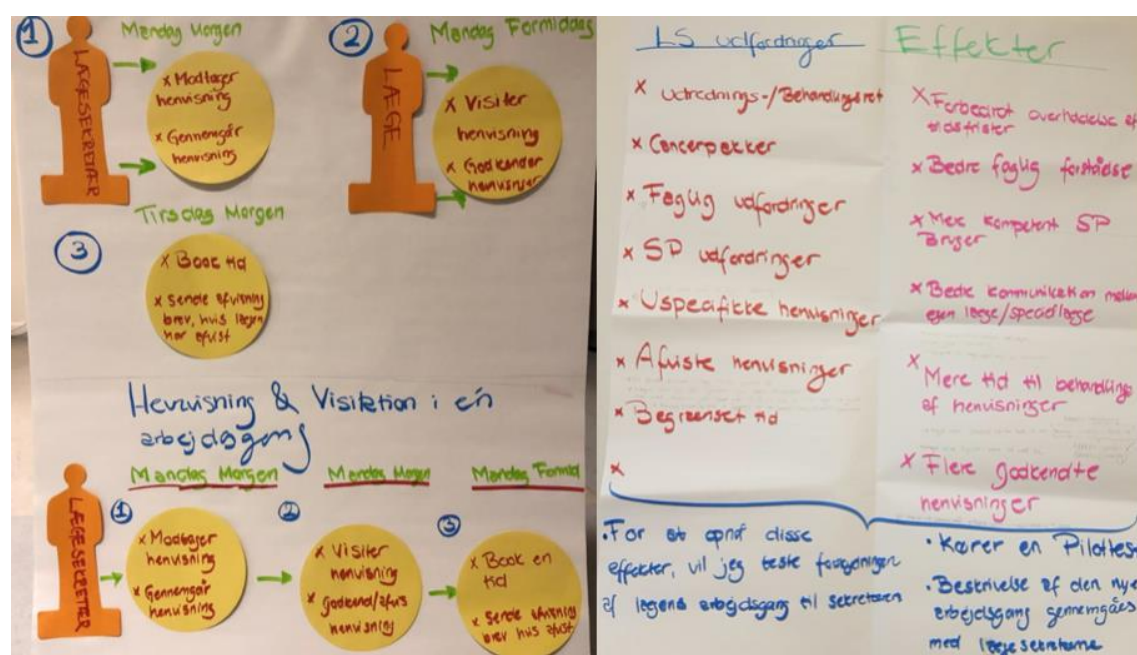 1
Mandag Morgen
LÆGESEKRETÆR
x Modtager
henvisning
x Gennemgår
henvisning
2
Mandag Formiddag
LÆGE
x Visiter
henvisning
x Godkender
henvisninger
3
Tirsdag Morgen
x Book tid
x Sende afvisning
brev, hvis lægen
har afvist
Henvisning & Visitation i én
arbejdsgang
LÆGESEKRETÆR
Mandag Morgen
1
x Modtager
henvisning
x Gennemgår
henvisning
Mandag Morgen
2
x Visiter
henvisning
x godkend/afvis
henvisning
Mandag Formid
3
x Book en
tid
x Sende afvisning
brev hvis afvist
LS udfordringer
x Udrednings-/Behandlingsret
x Cancerpakker
x Faglig udfordringer
x SP udfordringer
x Uspecifikke henvisninger
x Afviste henvisninger
x Begrænset tid
x
Effekter
x Forbedret overholdelse af
tidsfrister
x Bedre faglig forståelse
x Mere kompetent SP
Bruger
x Bedre kommunikation mellem
egen læge/speciallæge
x Mere tid til behandling
af henvisninger
x Flere godkendte
henvisninger
• For at opnå disse
effekter, vil jeg teste
af lægens arbejdsgang til sekretæren
• Kører en Pilottest
• Beskrivelse af den nye
arbejdsgang gennemgåes
med lægesekretærerne